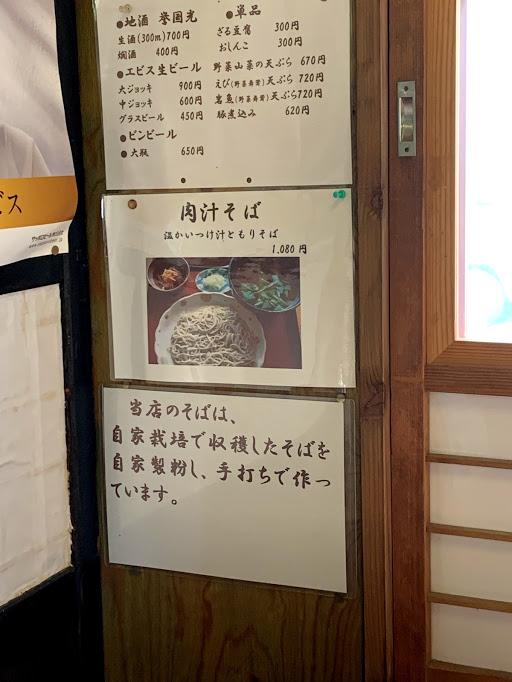 ●地酒 誉国光
生酒(300m)700円
燗酒 400円
●エビス生ビール
大ジョッキ 900円
中ジョッキ 600円
グラスビール 450円
●ビンビール
●大瓶 650円
●単品
ざる豆腐 300円
おしんこ 300円
野菜山菜の天ぷら 670円
えび(野菜舞茸)天ぷら 720円
岩魚(野菜舞茸)天ぷら720円
豚煮込み 620円
肉汁そば
温かいつけ汁ともりそば
1,080円
当店のそばは、
自家栽培で収穫したそばを
自家製粉し、手打ちで作っ
ています。
ビス